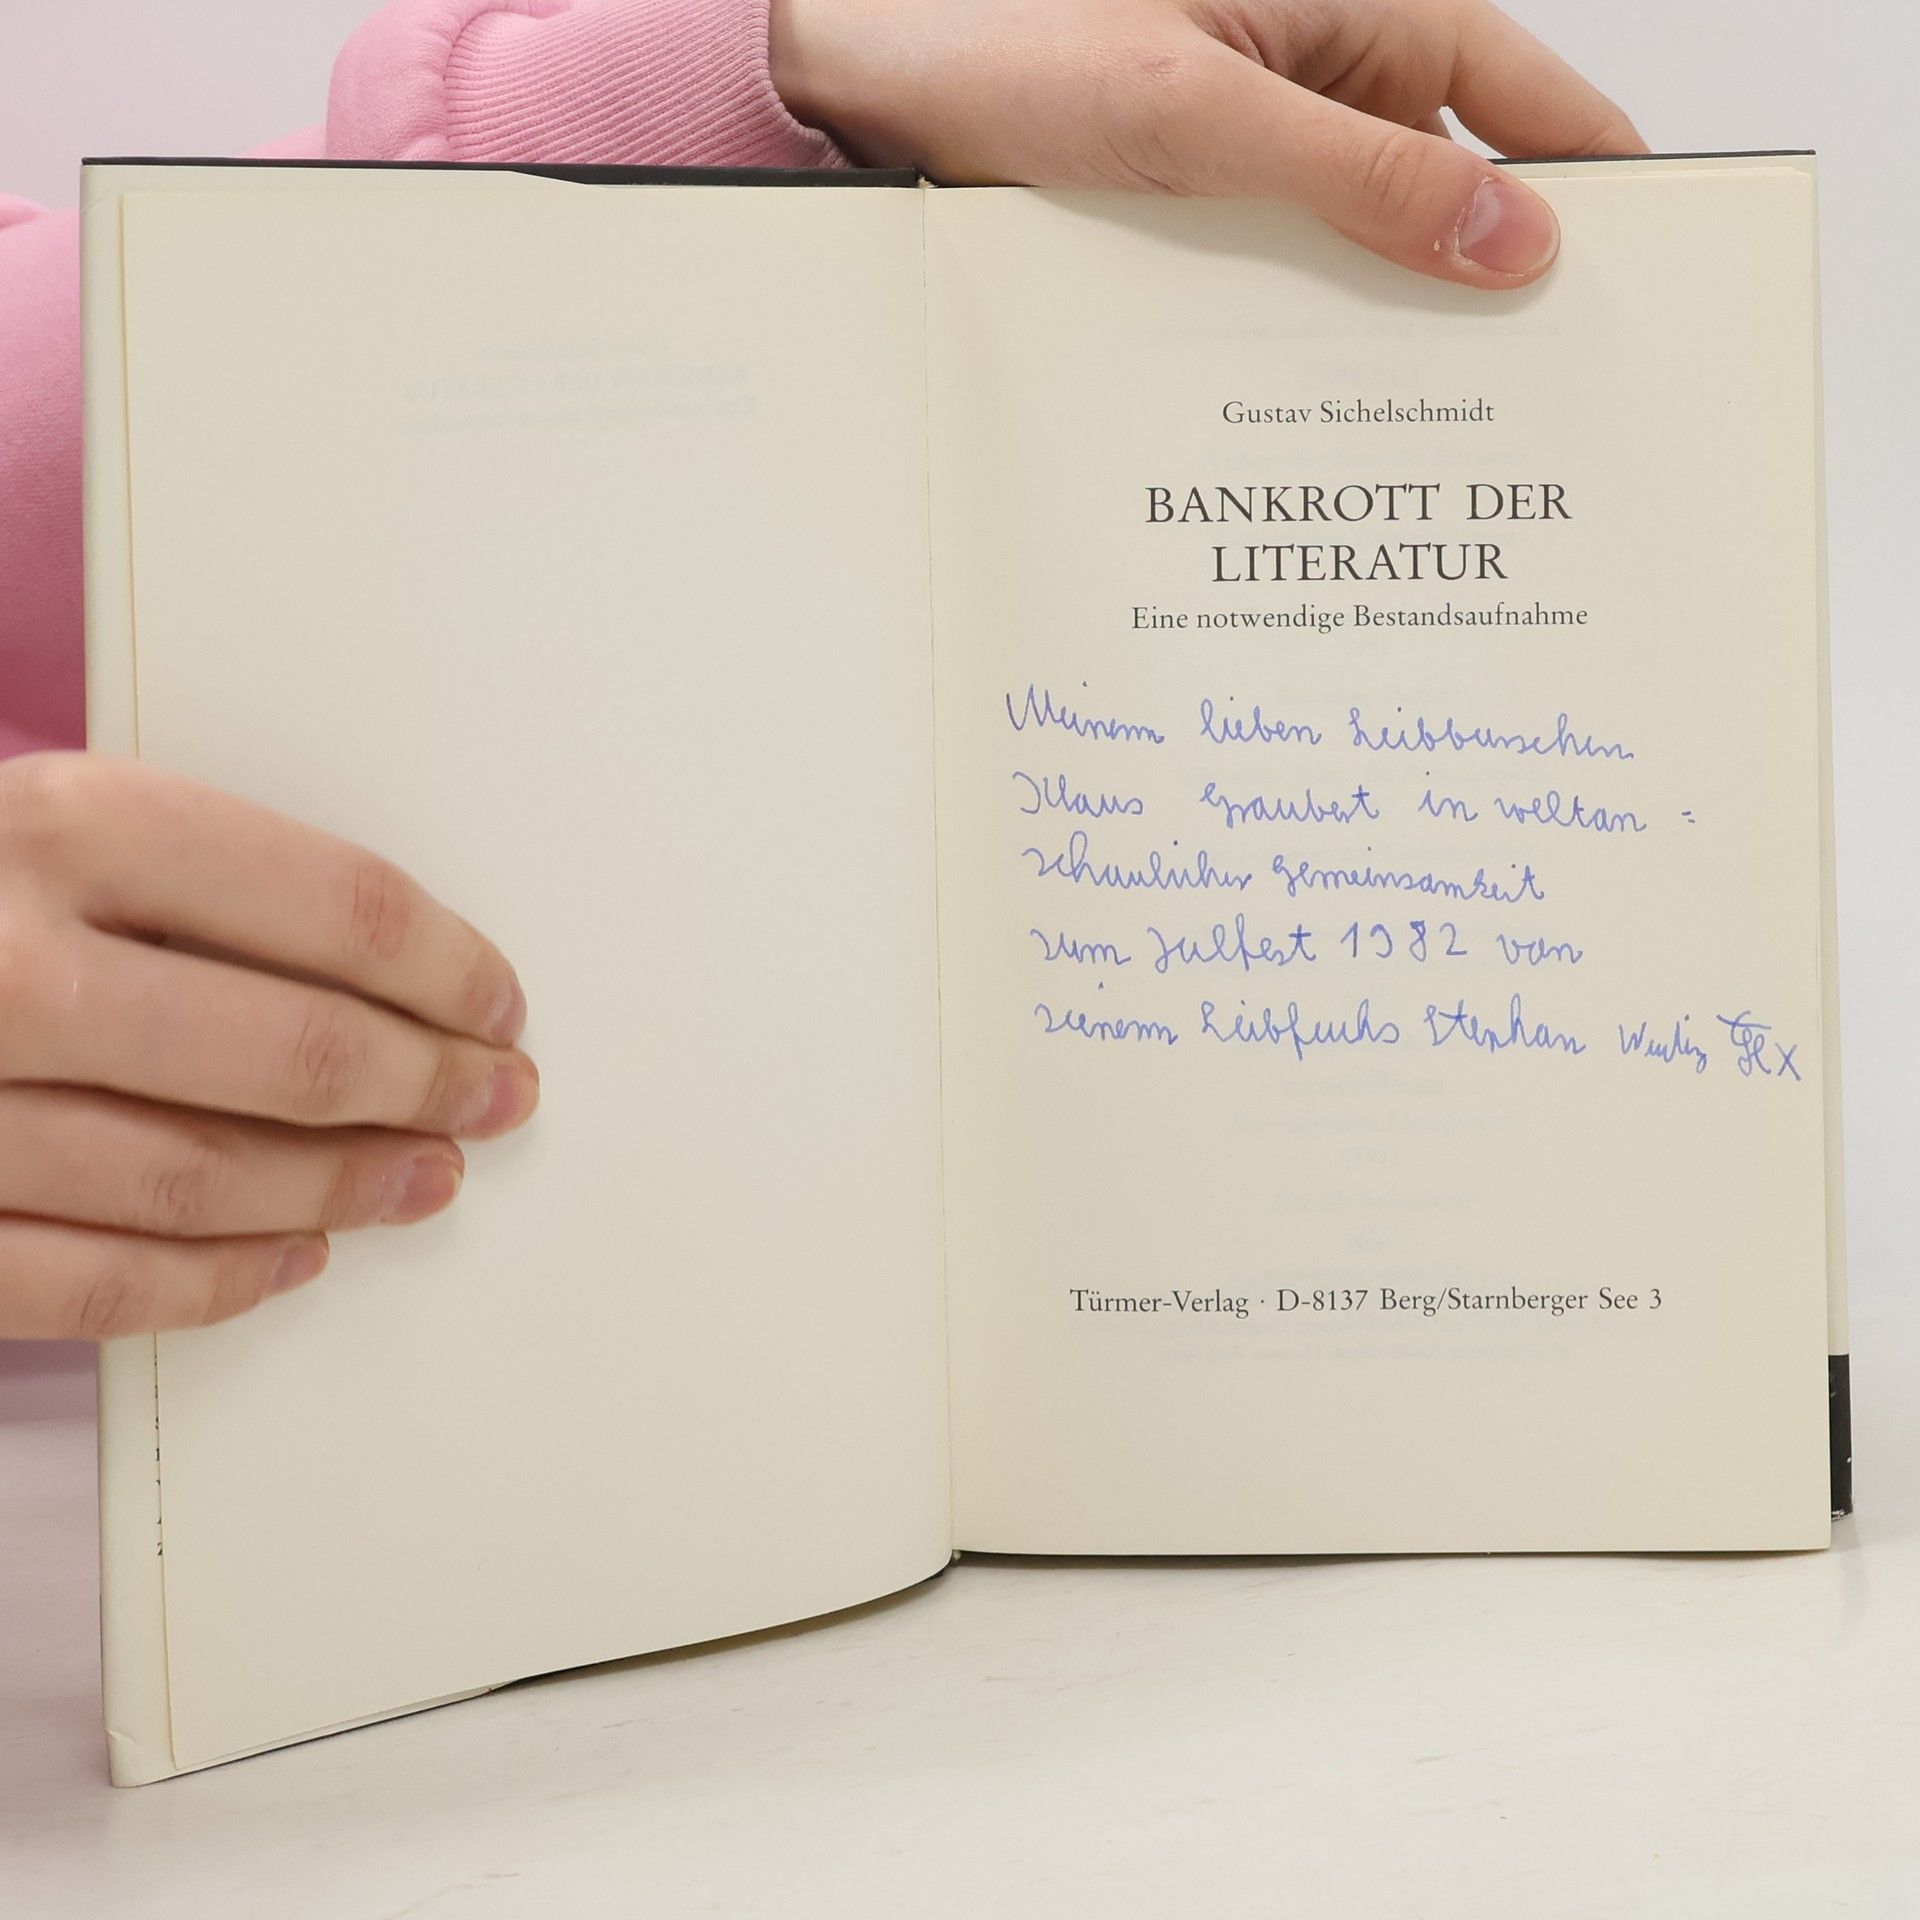 Gustav Sichelschmidt
BANKROTT DER
LITERATUR
Eine notwendige Bestandsaufnahme
Meinem lieben Leibburschen
Klaus Graubert in weltan =
schaulicher Gemeinsamkeit
zum Julfest 1982 von
seinem Leibfuchs Stephan
Türmer-Verlag · D-8137 Berg/Starnberger See 3